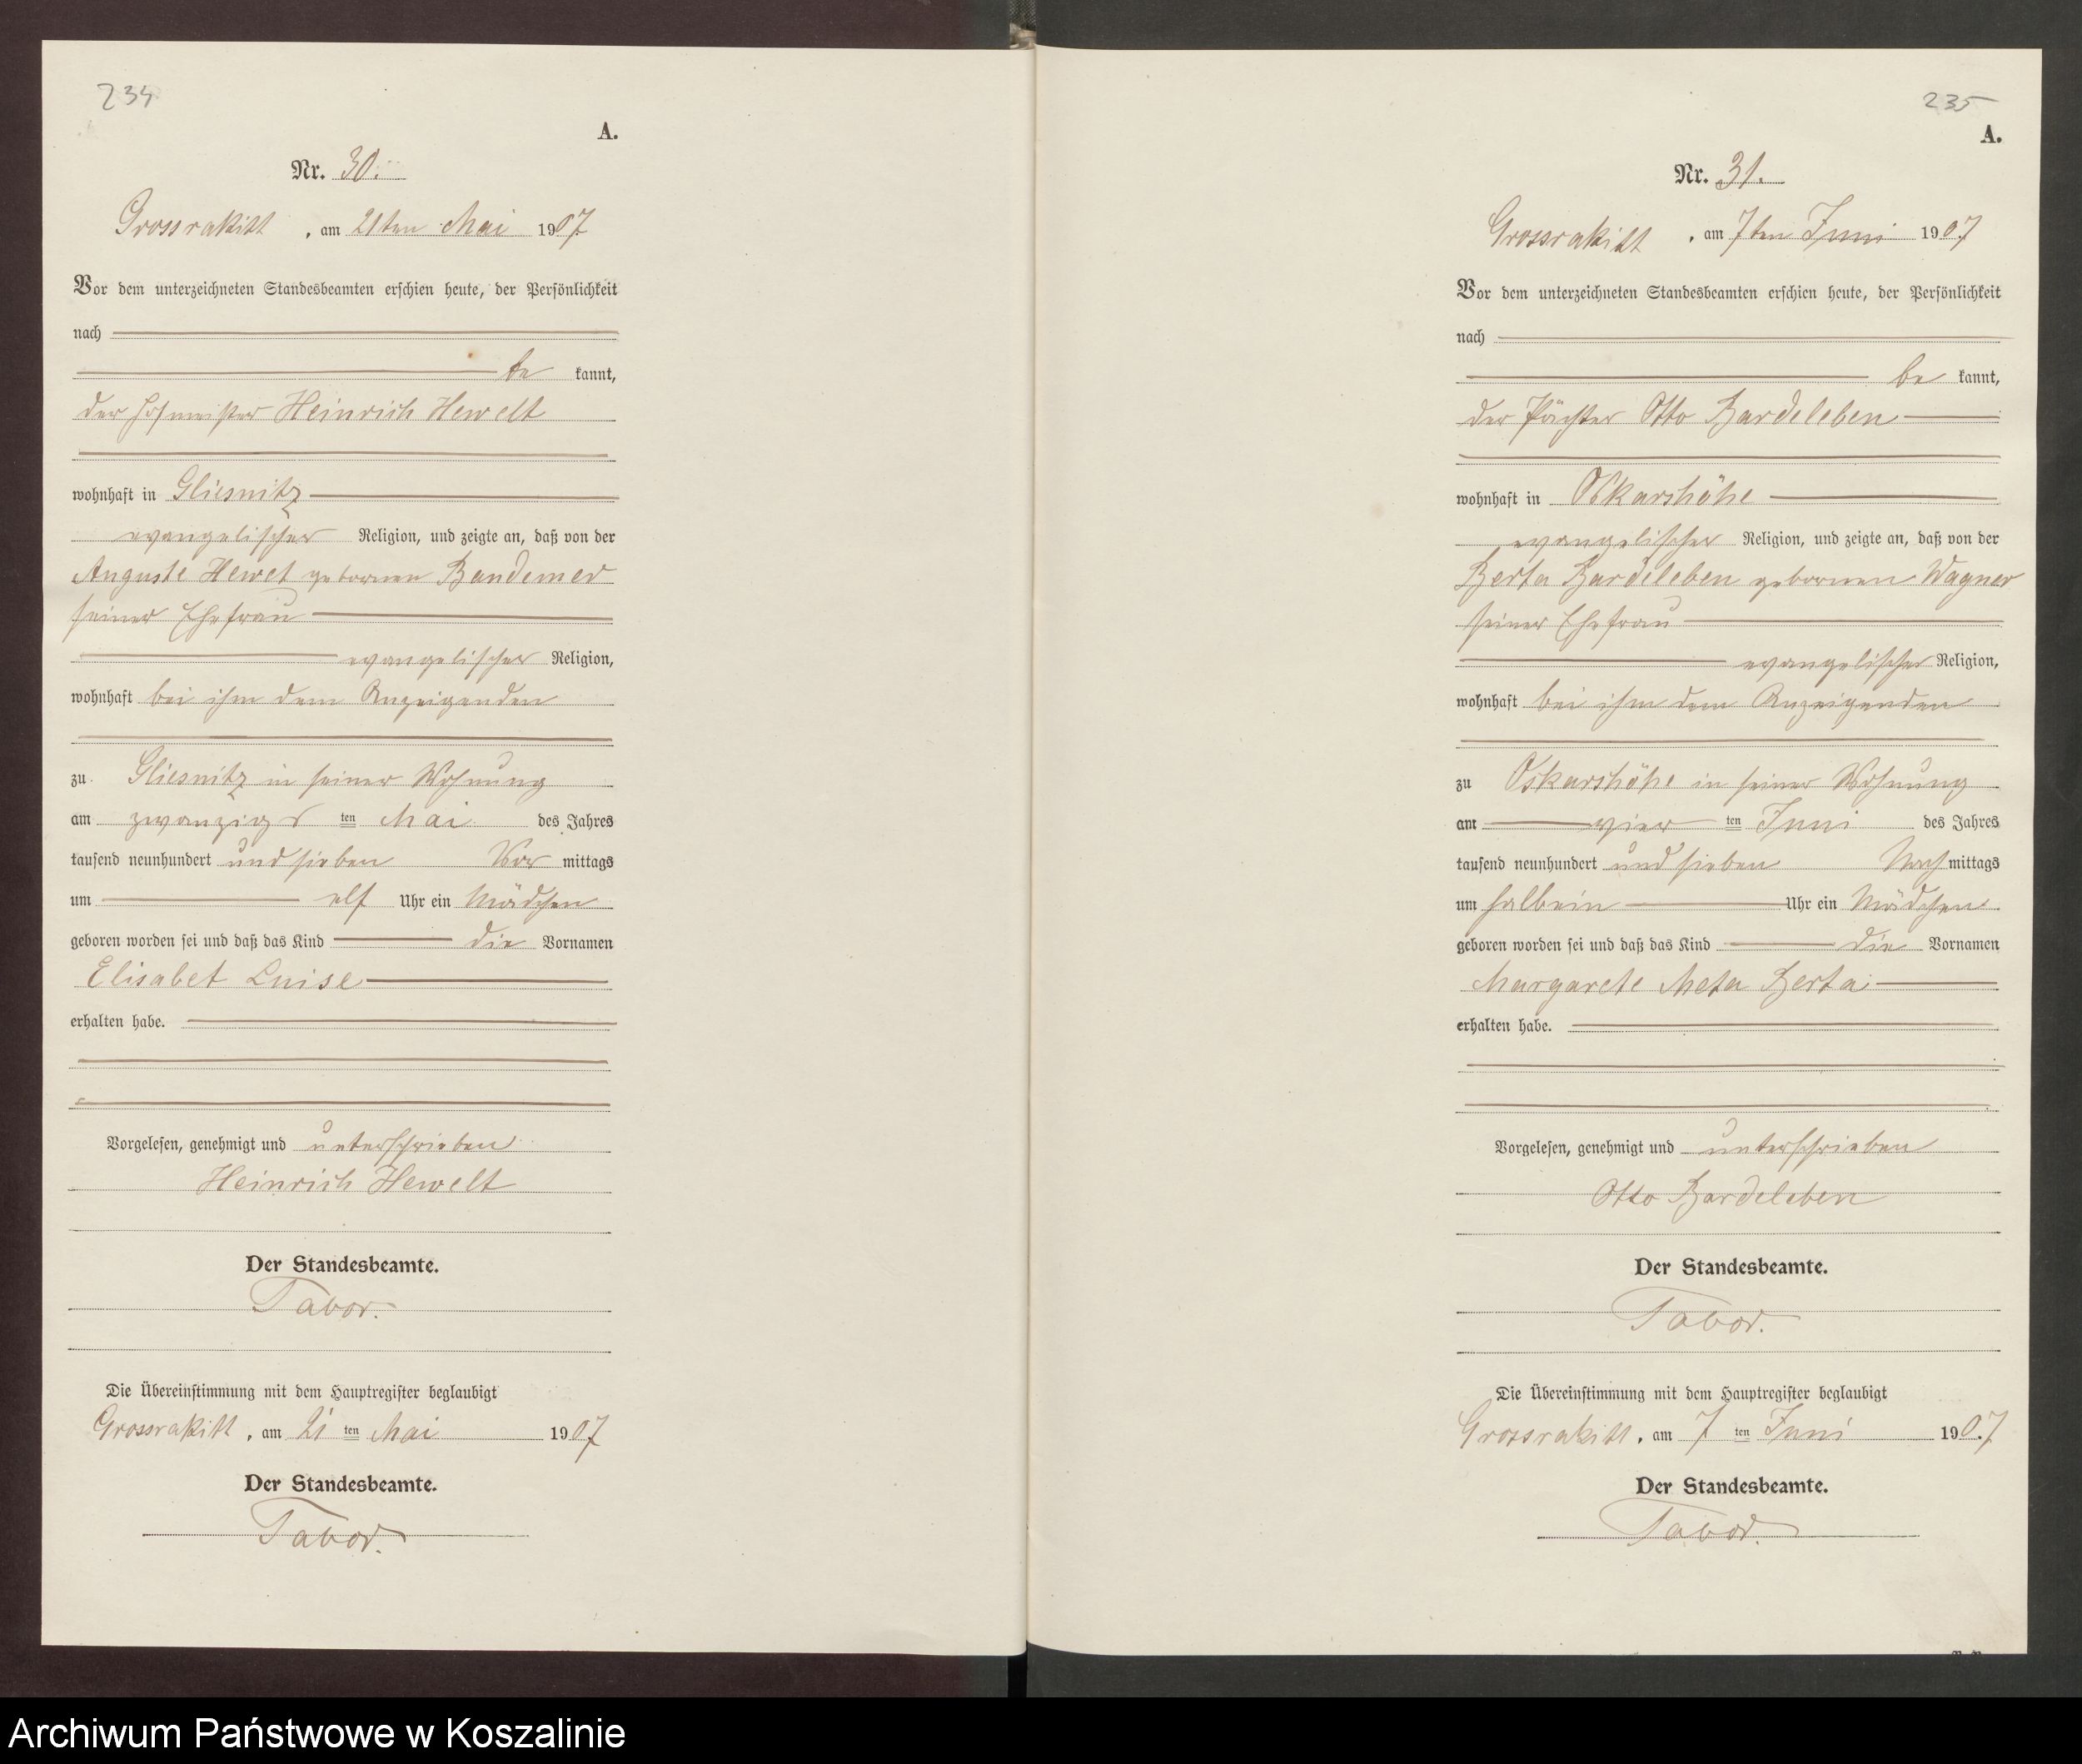 234
A.
Nr. 30.
Grossrakitt, am 21ten Mai 1907
Vor dem unterzeichneten Standesbeamten erschien heute, der Persönlichkeit
nach
be kannt,
der Hofmeister Heinrich Hewelt
wohnhaft in Gliesnitz
evangelischer Religion, und zeigte an, daß von der
Auguste Hewet gebornen Bandemer
seiner Ehefrau
evangelischer Religion,
wohnhaft bei ihm dem Anzeigenden
zu Gliesnitz in seiner Wohnung
am zwanzigs ten Mai des Jahres
tausend neunhundert und sieben Vor mittags
um elf Uhr ein Mädchen
geboren worden sei und daß das Kind die Vornamen
Elisabet Luise
erhalten habe.
Vorgelesen, genehmigt und unterschrieben
Heinrich Hewelt
Der Standesbeamte.
Tabor.
Die Übereinstimmung mit dem Hauptregister beglaubigt
Grossrakitt, am 21 ten Mai 1907
Der Standesbeamte.
Tabor.
235
A.
Nr. 31.
Grossrakitt, am 7ten Juni 1907
Vor dem unterzeichneten Standesbeamten erschien heute, der Persönlichkeit
nach
be kannt,
der Pächter Otto Bardeleben
wohnhaft in Oskarshöhe
evangelischer Religion, und zeigte an, daß von der
Berta Bardeleben gebornen Wagner
seiner Ehefrau
evangelischer Religion,
wohnhaft bei ihm dem Anzeigenden
zu Oskarshöhe in seiner Wohnung
am vier ten Juni des Jahres
tausend neunhundert und sieben Nach mittags
um halbein Uhr ein Mädchen
geboren worden sei und daß das Kind die Vornamen
Margarete Meta Berta
erhalten habe.
Vorgelesen, genehmigt und unterschrieben
Otto Bardeleben
Der Standesbeamte.
Tabor.
Die Übereinstimmung mit dem Hauptregister beglaubigt
Grossrakitt, am 7 ten Juni 1907
Der Standesbeamte.
Tabor.
Archiwum Państwowe w Koszalinie